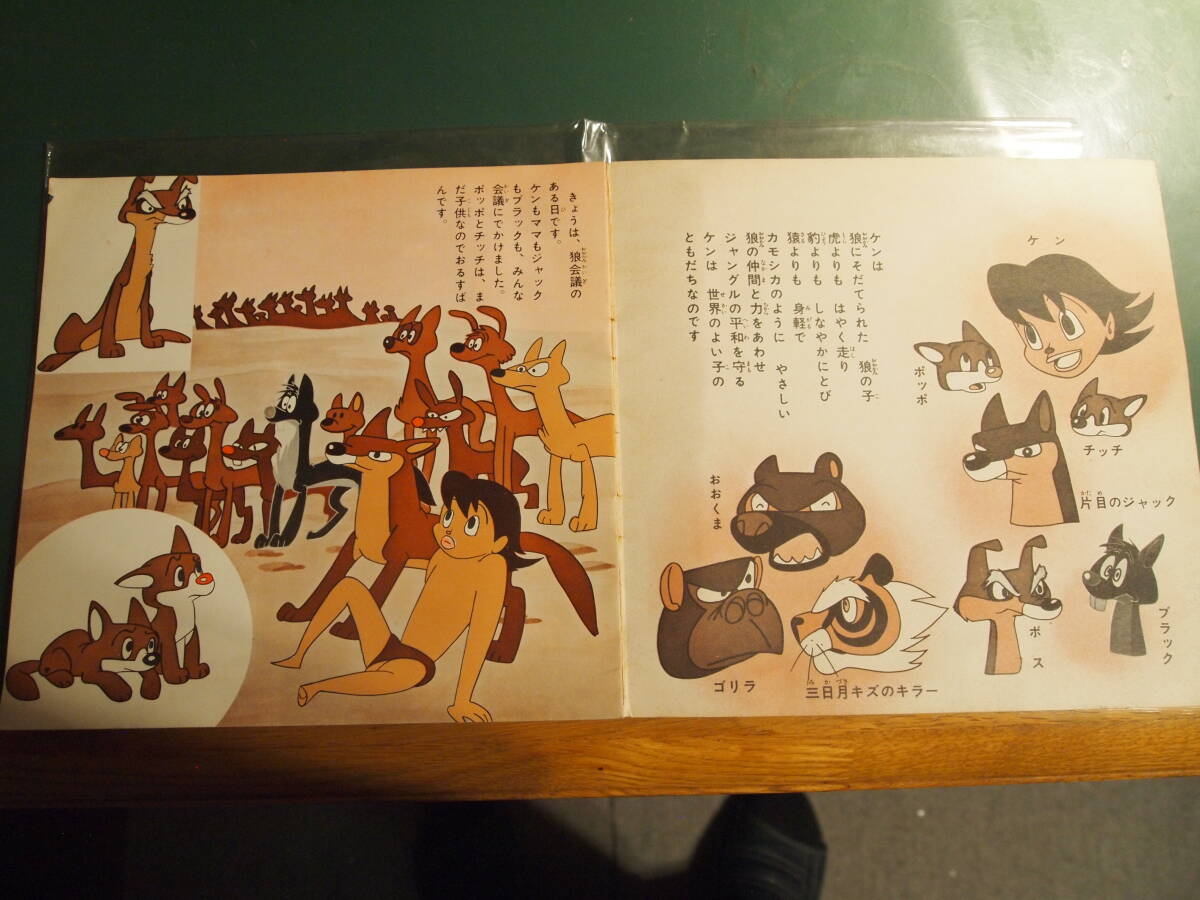 ケンは
狼にそだてられた　狼の子
虎よりも　はやく走り
豹よりも　しなやかにとび
猿よりも　身軽で
カモシカのように　やさしい
狼の仲間と力をあわせ
ジャングルの平和を守る
ケンは　世界のよい子の
ともだちなのです
ケン
ポッポ
チッチ
片目のジャック
ボス
ブラック
おおくま
ゴリラ
三日月キズのキラー
きょうは、狼会議の
ある日です。
ケンもママもジャック
もブラックも、みんな
会議にでかけました。
ポッポとチッチは、ま
だ子供なのでおるすば
んです。